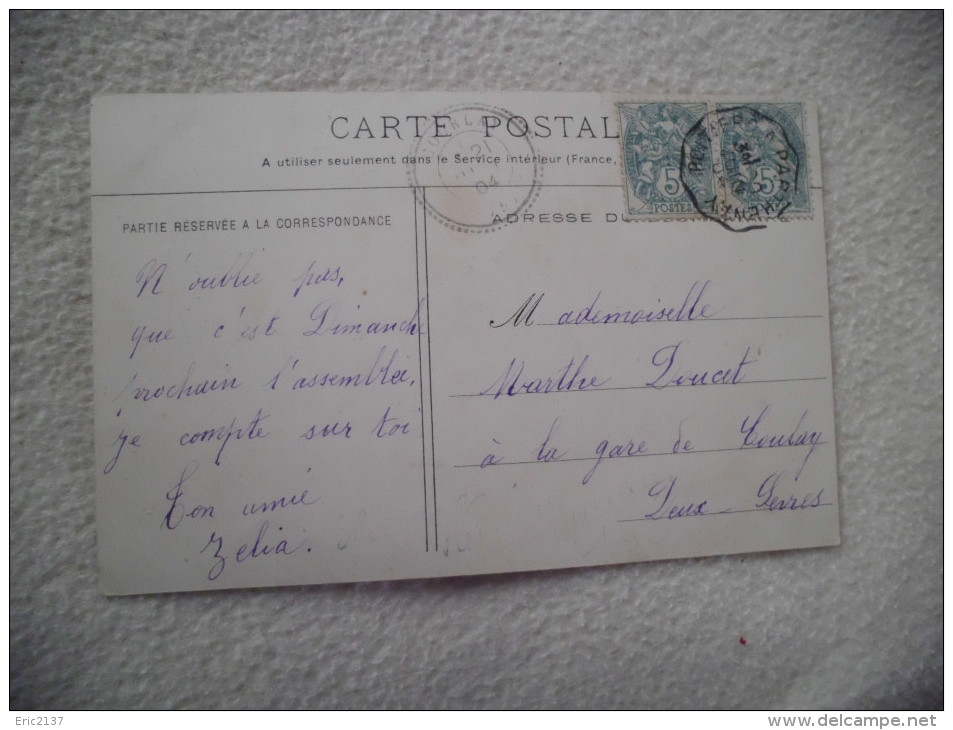 CARTE POSTAL
A utiliser seulement dans le Service intérieur (France,
21
04
5
POSTES
5
POITIERS A PARTHENAY
04
PARTIE RÉSERVÉE A LA CORRESPONDANCE
ADRESSE DU
N'oublie pas,
que c'est Dimanche
prochain l'assemblée,
je compte sur toi
Ton amie
Zelia.
Mademoiselle
Marthe Doucet
à la gare de Coulay
Deux-Sevres
Eric2137
http://www.delcampe.net